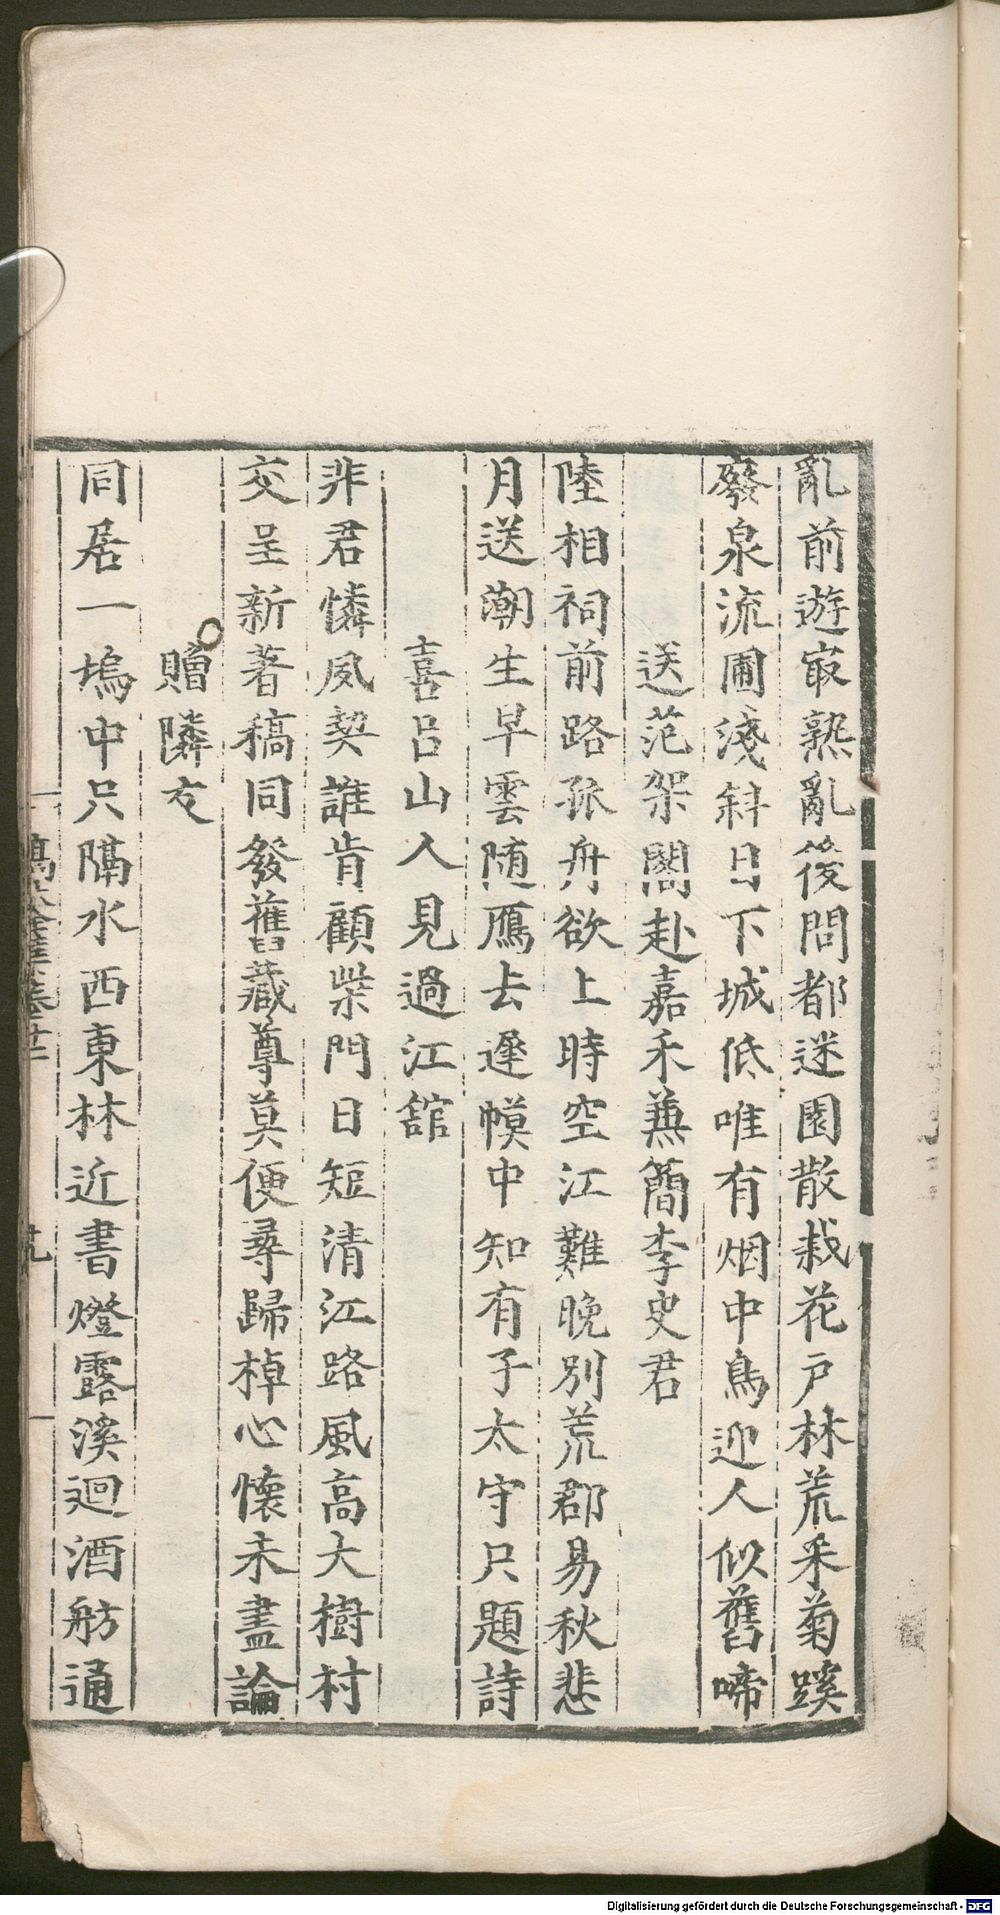 亂前遊㝡熟亂後問都迷園散栽花戸林荒采菊蹊
廢泉流圃淺斜日下城低唯有烟中鳥迎人似舊啼
送范架閣赴嘉禾兼簡李史君
陸相祠前路孤舟欲上時空江難晚別荒郡易秋悲
月送潮生早雲随鴈去遲幙中知有子太守只題詩
喜呂山人見過江舘
非君憐夙契誰肯顧柴門日短清江路風高大樹村
交呈新著稿同發舊藏尊莫便尋歸棹心懷未盡論
贈隣友
同居一塢中只隔水西東林近書燈露溪迴酒舫通
Digitalisierung gefördert durch die Deutsche Forschungsgemeinschaft - DFG